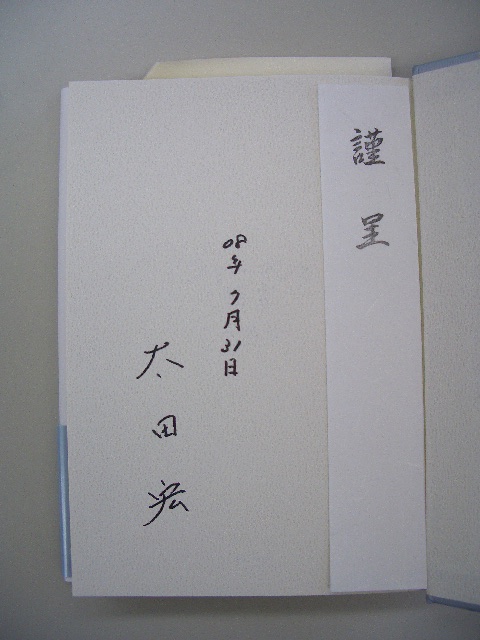 謹呈
08年7月31日
太田宏